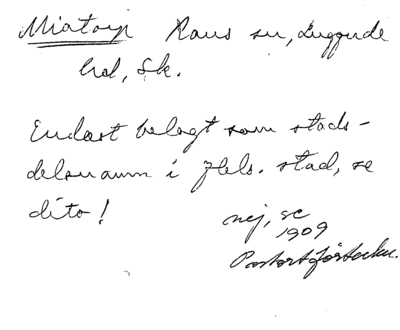 Miatorp Raus sn, Luggude
hd, Sk.
Endast belagt som stads-
delsnamn i Hels. stad, se
dito!
nej, se
1909
Postortförteckn.